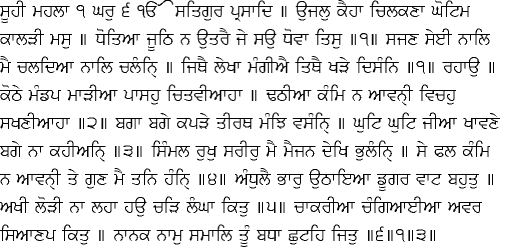 ਸੂਹੀ ਮਹਲਾ ੧ ਘਰੁ ੬ ੴ ਸਤਿਗੁਰ ਪ੍ਰਸਾਦਿ ॥ ਉਜਲੁ ਕੈਹਾ ਚਿਲਕਣਾ ਘੋਟਿਮ
ਕਾਲੜੀ ਮਸੁ ॥ ਧੋਤਿਆ ਜੂਠਿ ਨ ਉਤਰੈ ਜੇ ਸਉ ਧੋਵਾ ਤਿਸੁ ॥੧॥ ਸਜਣ ਸੇਈ ਨਾਲਿ
ਮੈ ਚਲਦਿਆ ਨਾਲਿ ਚਲੰਨ੍ਹਿ ॥ ਜਿਥੈ ਲੇਖਾ ਮੰਗੀਐ ਤਿਥੈ ਖੜੇ ਦਿਸੰਨਿ ॥੧॥ ਰਹਾਉ ॥
ਕੋਠੇ ਮੰਡਪ ਮਾੜੀਆ ਪਾਸਹੁ ਚਿਤਵੀਆਹਾ ॥ ਢਠੀਆ ਕੰਮਿ ਨ ਆਵਨ੍ਹੀ ਵਿਚਹੁ
ਸਖਣੀਆਹਾ ॥੨॥ ਬਗਾ ਬਗੇ ਕਪੜੇ ਤੀਰਥ ਮੰਝਿ ਵਸੰਨ੍ਹਿ ॥ ਘੁਟਿ ਘੁਟਿ ਜੀਆ ਖਾਵਣੇ
ਬਗੇ ਨਾ ਕਹੀਅਨ੍ਹਿ ॥੩॥ ਸਿੰਮਲ ਰੁਖੁ ਸਰੀਰੁ ਮੈ ਮੈਜਨ ਦੇਖਿ ਭੁਲੰਨ੍ਹਿ ॥ ਸੇ ਫਲ ਕੰਮਿ
ਨ ਆਵਨ੍ਹੀ ਤੇ ਗੁਣ ਮੈ ਤਨਿ ਹੰਨ੍ਹਿ ॥੪॥ ਅੰਧੁਲੈ ਭਾਰੁ ਉਠਾਇਆ ਡੂਗਰ ਵਾਟ ਬਹੁਤੁ ॥
ਅਖੀ ਲੋੜੀ ਨਾ ਲਹਾ ਹਉ ਚੜਿ ਲੰਘਾ ਕਿਤੁ ॥੫॥ ਚਾਕਰੀਆ ਚੰਗਿਆਈਆ ਅਵਰ
ਸਿਆਣਪ ਕਿਤੁ ॥ ਨਾਨਕ ਨਾਮੁ ਸਮਾਲਿ ਤੂੰ ਬਧਾ ਛੁਟਹਿ ਜਿਤੁ ॥੬॥੧॥੩॥